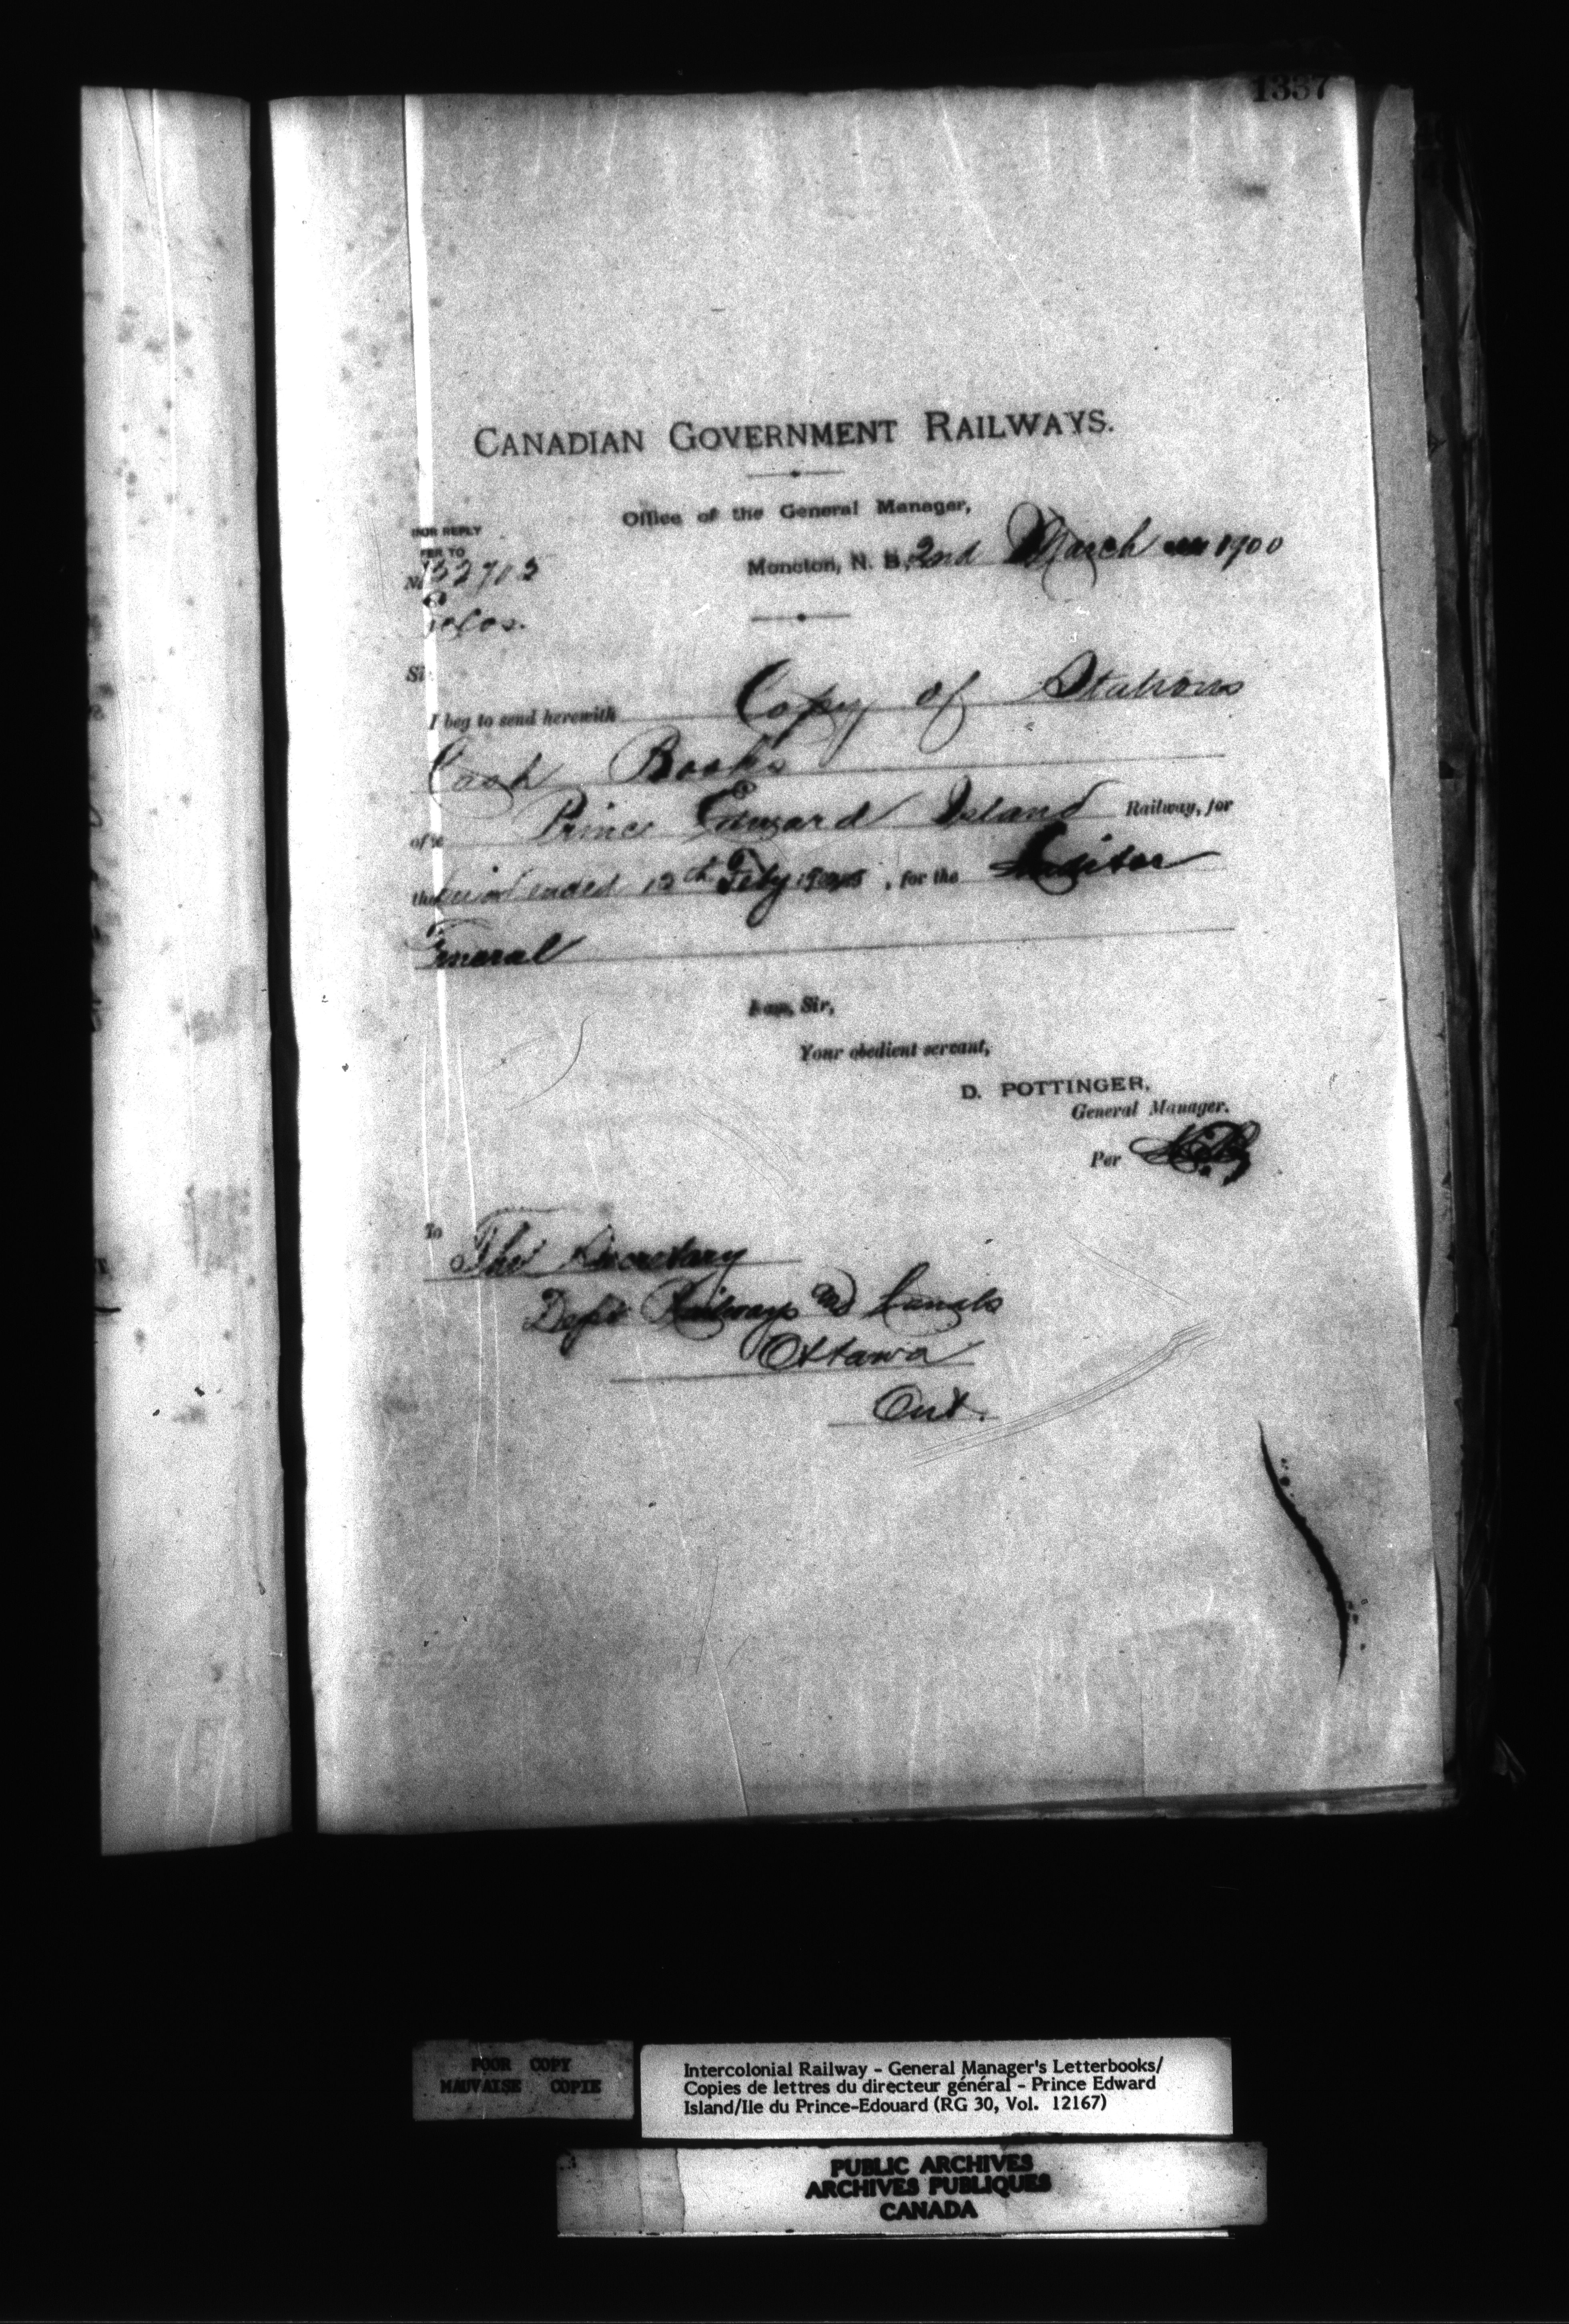 1337
CANADIAN GOVERNMENT RAILWAYS.
Office of the General Manager,
FOR REPLY
FER TO
Moncton, N. B., 2nd March 1900
No 32703
Sir
I beg to send herewith Copy of Stations
Cash Books
of the Prince Edward Island Railway, for
the period ended 13th Feby 1900, for the Auditor
General
I am, Sir,
Your obedient servant,
D. POTTINGER,
General Manager.
Per
To The Secretary
Dept Railways and Canals
Ottawa
Ont.
POOR COPY
MAUVAISE COPIE
Intercolonial Railway - General Manager's Letterbooks/
Copies de lettres du directeur général - Prince Edward
Island/Ile du Prince-Edouard (RG 30, Vol. 12167)
PUBLIC ARCHIVES
ARCHIVES PUBLIQUES
CANADA